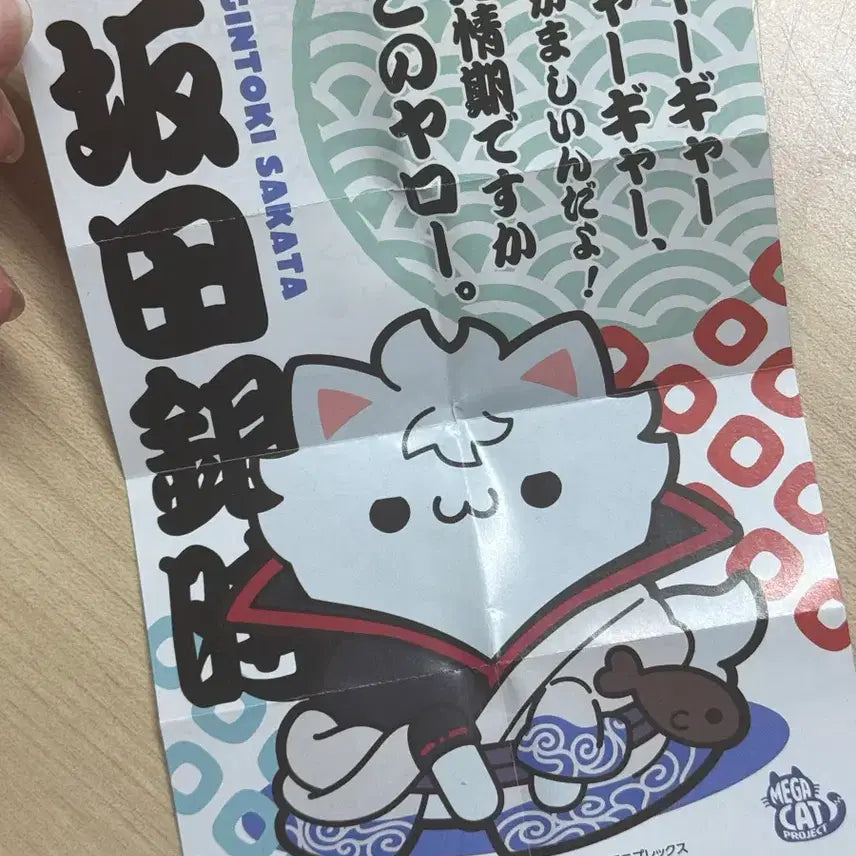 ーギャー
ャーギャー、
かましいんだよ!
情期ですか
このヤロー。
GINTOKI SAKATA
坂田銀時
MEGA
CAT
PROJECT
プレックス